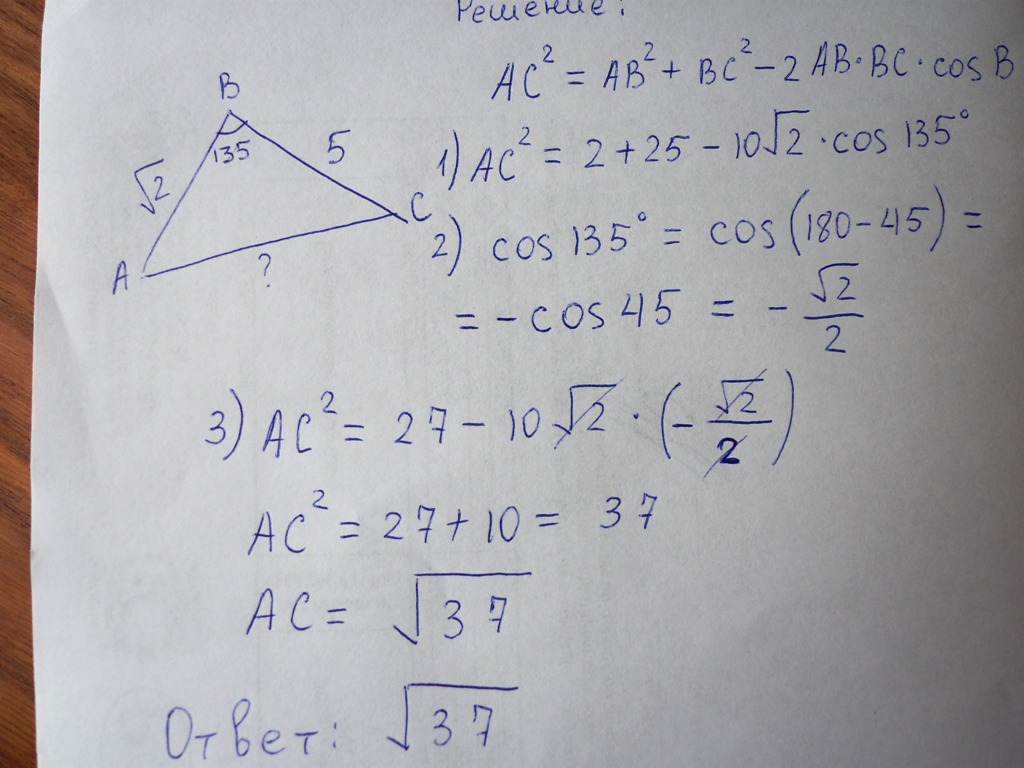 Решение:
AC² = AB² + BC² - 2 AB·BC·cos B
B
135
√2
5
A
C
?
1) AC² = 2 + 25 - 10√2 · cos 135°
2) cos 135° = cos (180 - 45) =
= - cos 45 = - √2/2
3) AC² = 27 - 10 √2 · (- √2/2)
AC² = 27 + 10 = 37
AC = √37
Ответ: √37